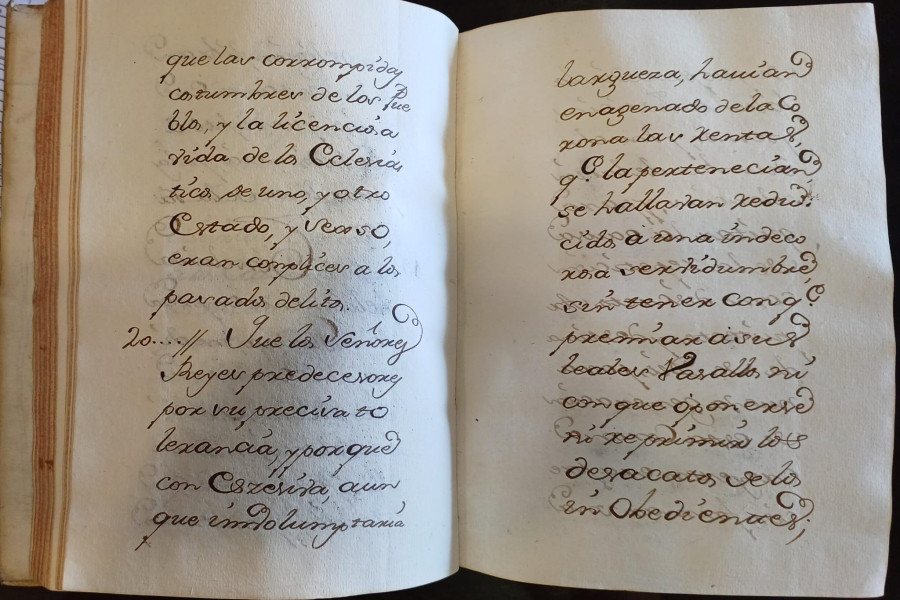 que las corrompidas
costumbres de los Pue
blos, y la licenciosa
vida de los Eclesiás
ticos de uno, y otro
Estado, y Sexso,
eran complices a los
pasados delitos.
20....// Que los Señores
Reyes predecesores
por su precisa to
lerancia, y porque
con Excesiva, aun
que imboluntaria
largueza, havian
enagenado de la Co
rona las rentas,
q.e la pertenecian,
se hallavan redu
cidos a una indeco
rosa servidumbre,
sin tener con q.e
premiar a sus
leales Vasallos ni
con que oponerse
ni reprimir los
desacatos de los
inObedientes;